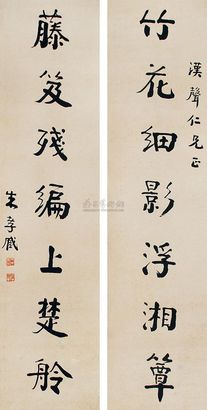 漢聲仁兄正
竹花細影浮湘簟
藤笈殘編上楚舲
朱孝臧